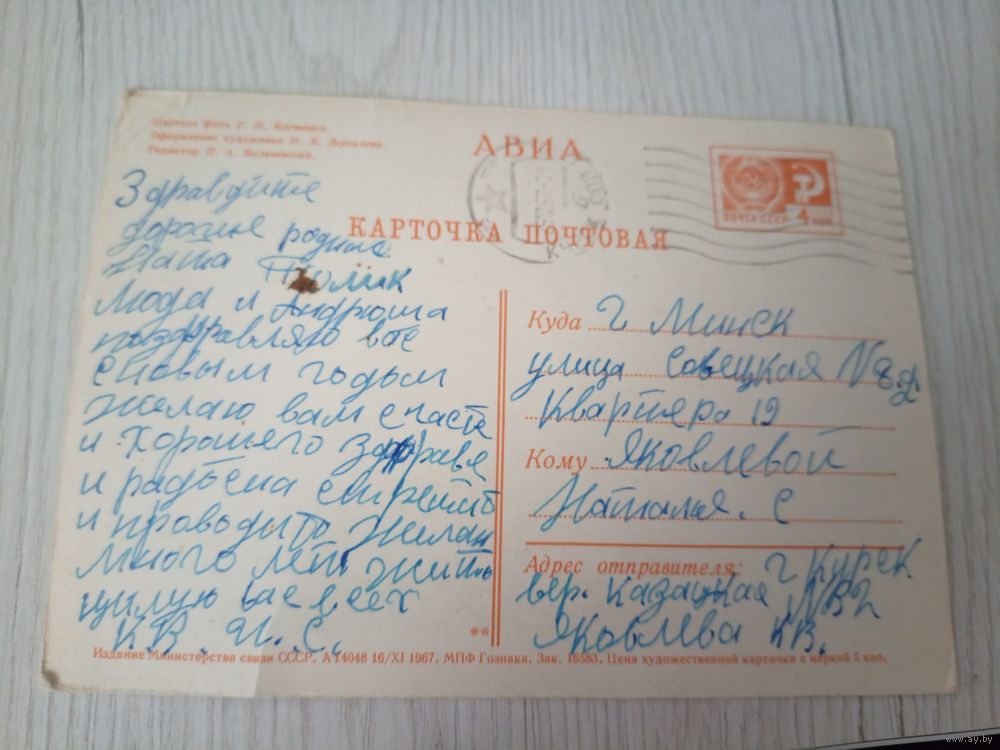 Цветное фото Г. Н. Костенко.
Оформление художника П. Я.
Редактор П. А.
АВИА
КАРТОЧКА ПОЧТОВАЯ
ПОЧТА СССР
4 коп
Здравдите
дорогие родные
Ната Толик
Люда и Андрюша
поздравляю вас
с новым годом
желаю вам счастя
и хорошего здоровя
и радосна стретить
и проводить желаю
много лет жить
цилую вас всех
К.В. И. С.
Куда г Минск
улица Совецкая N 8.
Квартера 19
Кому Яковлевой
Наталья. С
Адрес отправителя: г Курск
вер. Казацкая
Яковлева К.В.
**
Издание Министерства связи СССР. А14048 16/XI 1967. МПФ Гознака. Зак. 16583. Цена художественной карточки с маркой 5 коп.
www.ay.by